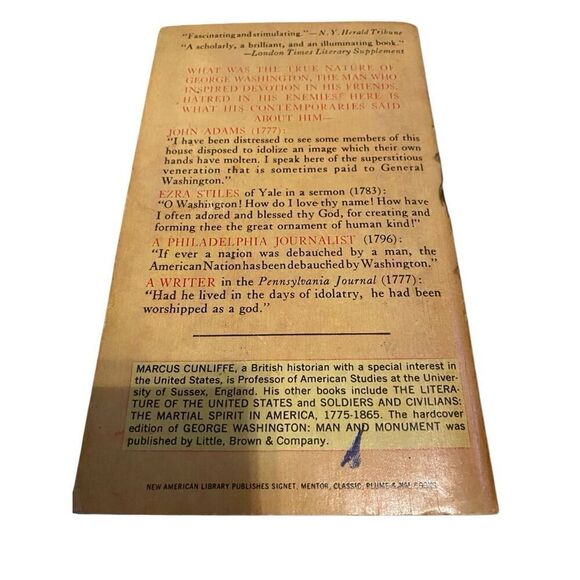 "Fascinating and stimulating."—N. Y. Herald Tribune
"A scholarly, a brilliant, and an illuminating book."
—London Times Literary Supplement
WHAT WAS THE TRUE NATURE OF
GEORGE WASHINGTON, THE MAN WHO
INSPIRED DEVOTION IN HIS FRIENDS,
HATRED IN HIS ENEMIES? HERE IS
WHAT HIS CONTEMPORARIES SAID
ABOUT HIM—
JOHN ADAMS (1777):
"I have been distressed to see some members of this
house disposed to idolize an image which their own
hands have molten. I speak here of the superstitious
veneration that is sometimes paid to General
Washington."
EZRA STILES of Yale in a sermon (1783):
"O Washington! How do I love thy name! How have
I often adored and blessed thy God, for creating and
forming thee the great ornament of human kind!"
A PHILADELPHIA JOURNALIST (1796):
"If ever a nation was debauched by a man, the
American Nation has been debauched by Washington."
A WRITER in the Pennsylvania Journal (1777):
"Had he lived in the days of idolatry, he had been
worshipped as a god."
MARCUS CUNLIFFE, a British historian with a special interest in
the United States, is Professor of American Studies at the Univer-
sity of Sussex, England. His other books include THE LITERA-
TURE OF THE UNITED STATES and SOLDIERS AND CIVILIANS:
THE MARTIAL SPIRIT IN AMERICA, 1775-1865. The hardcover
edition of GEORGE WASHINGTON: MAN AND MONUMENT was
published by Little, Brown & Company.
NEW AMERICAN LIBRARY PUBLISHES SIGNET, MENTOR, CLASSIC, PLUME & NAL BOOKS